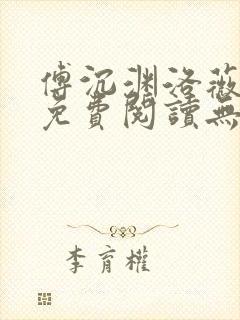 傅沉渊洛薇
免費閱讀無
李育權